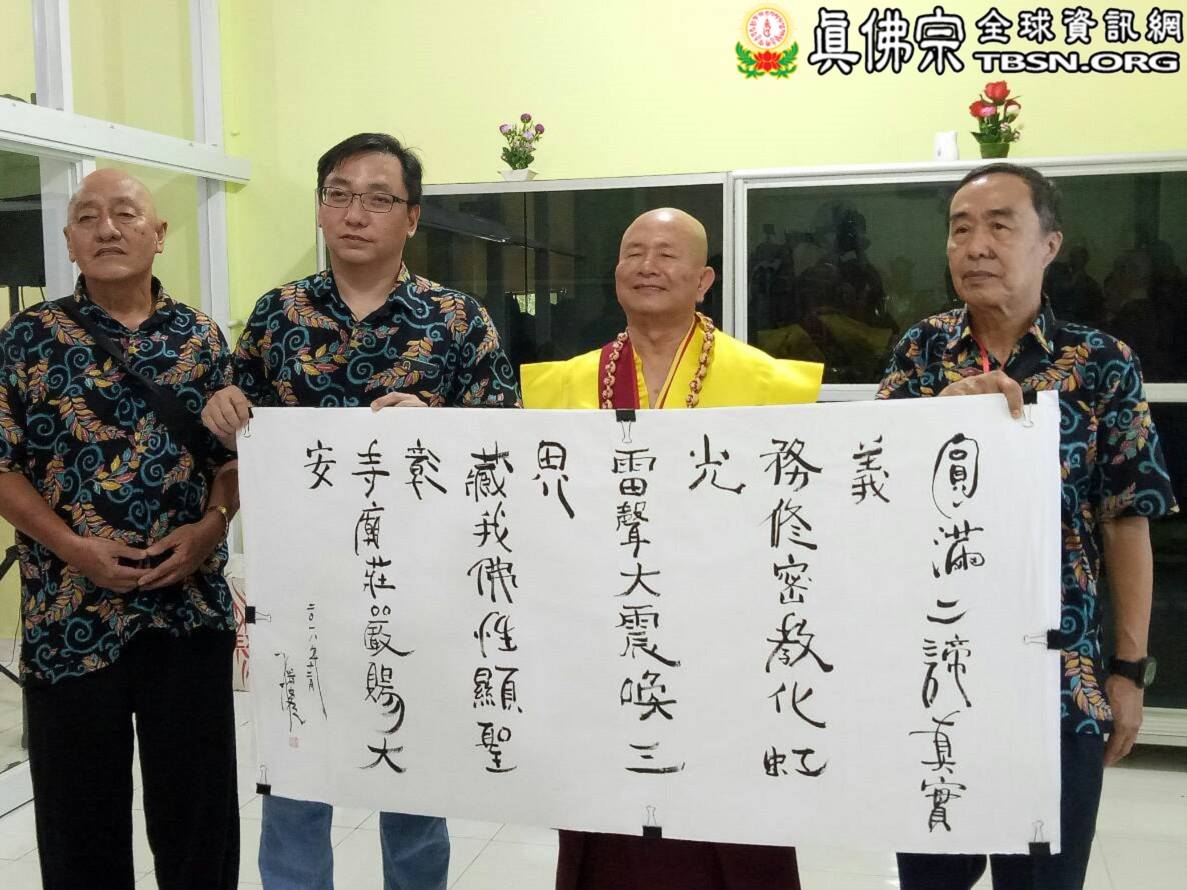 真佛宗 全球資訊網
TBSN.ORG
圓滿二諦真實
義
務修密教化虹
光
雷聲大震喚三
界
藏我佛性顯聖
彰
寺廟莊嚴賜大
安
二〇一八年